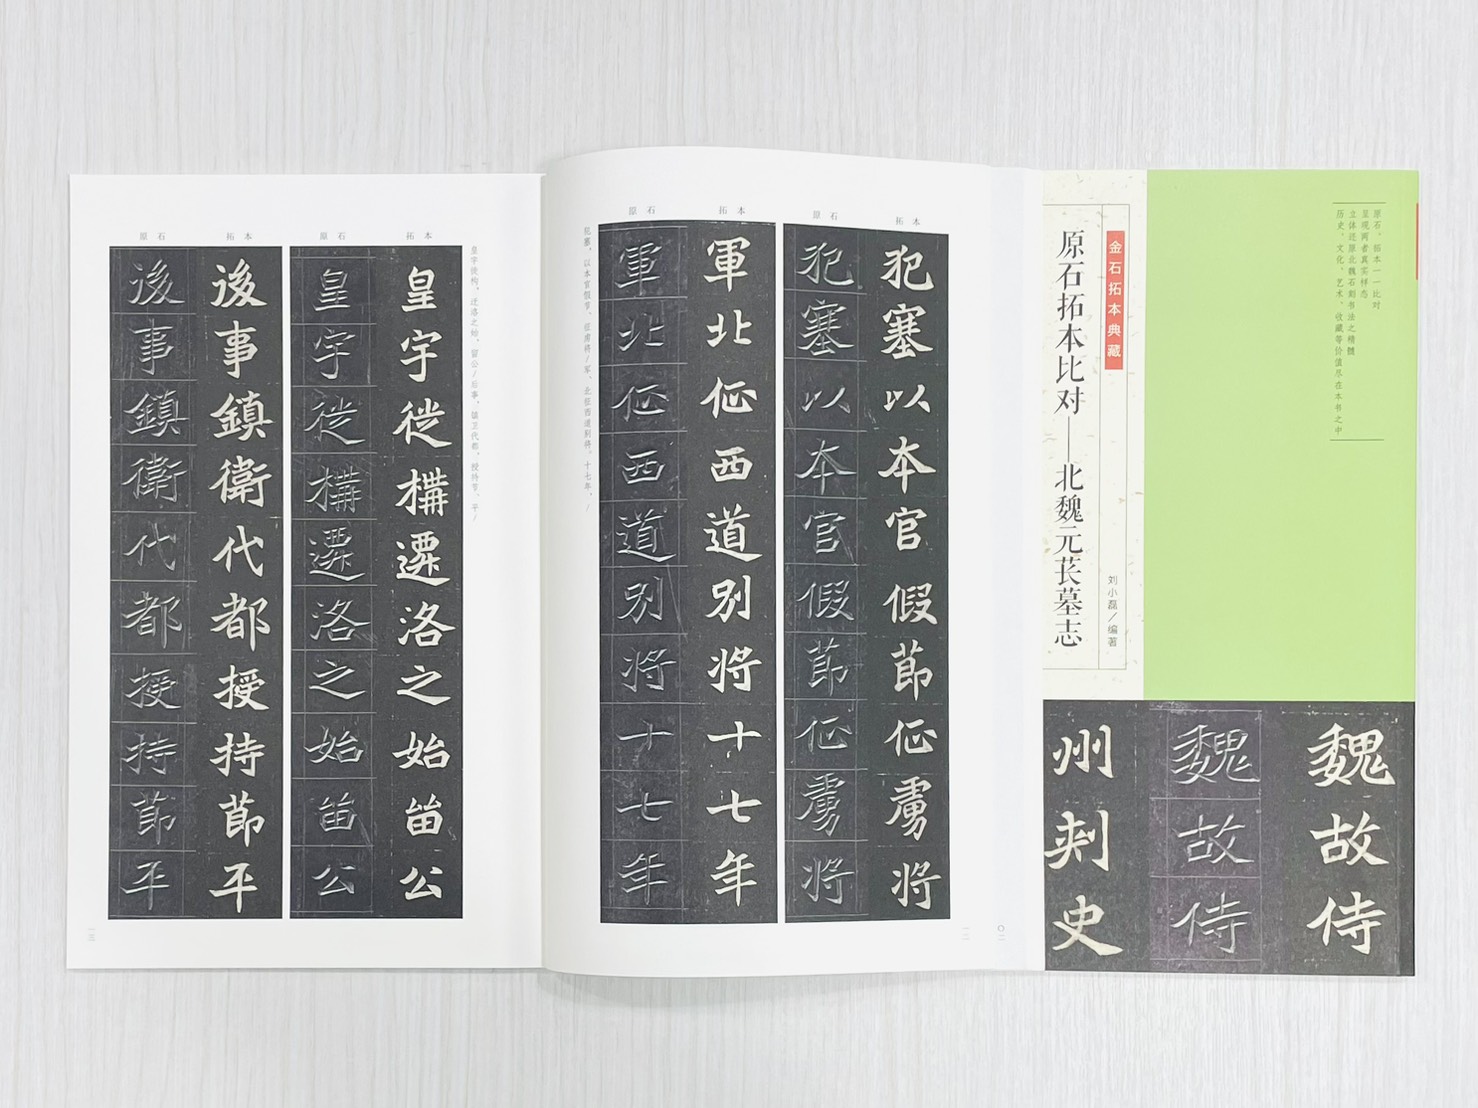 原石、拓本一一比对
呈现两者真实样态
立体还原北魏石刻书法之精髓
历史、文化、艺术、收藏等价值尽在本书之中
金石拓本典藏
原石拓本比对——北魏元苌墓志
刘小磊／编著
魏故侍
魏故侍
州刾史
〇二
拓本
犯塞以本官假節征虜将
原石
犯塞以本官假節征虜将
拓本
軍北征西道别将十七年
原石
軍北征西道别将十七年
犯塞，以本官假节、征虏将/军、北征西道别将。十七年，/
一二
皇宇徙构，迁洛之始，留公/后事，镇卫代都，授持节、平/
拓本
皇宇徙構遷洛之始留公
原石
皇宇徙構遷洛之始留公
拓本
後事鎮衛代都授持節平
原石
後事鎮衛代都授持節平
一三